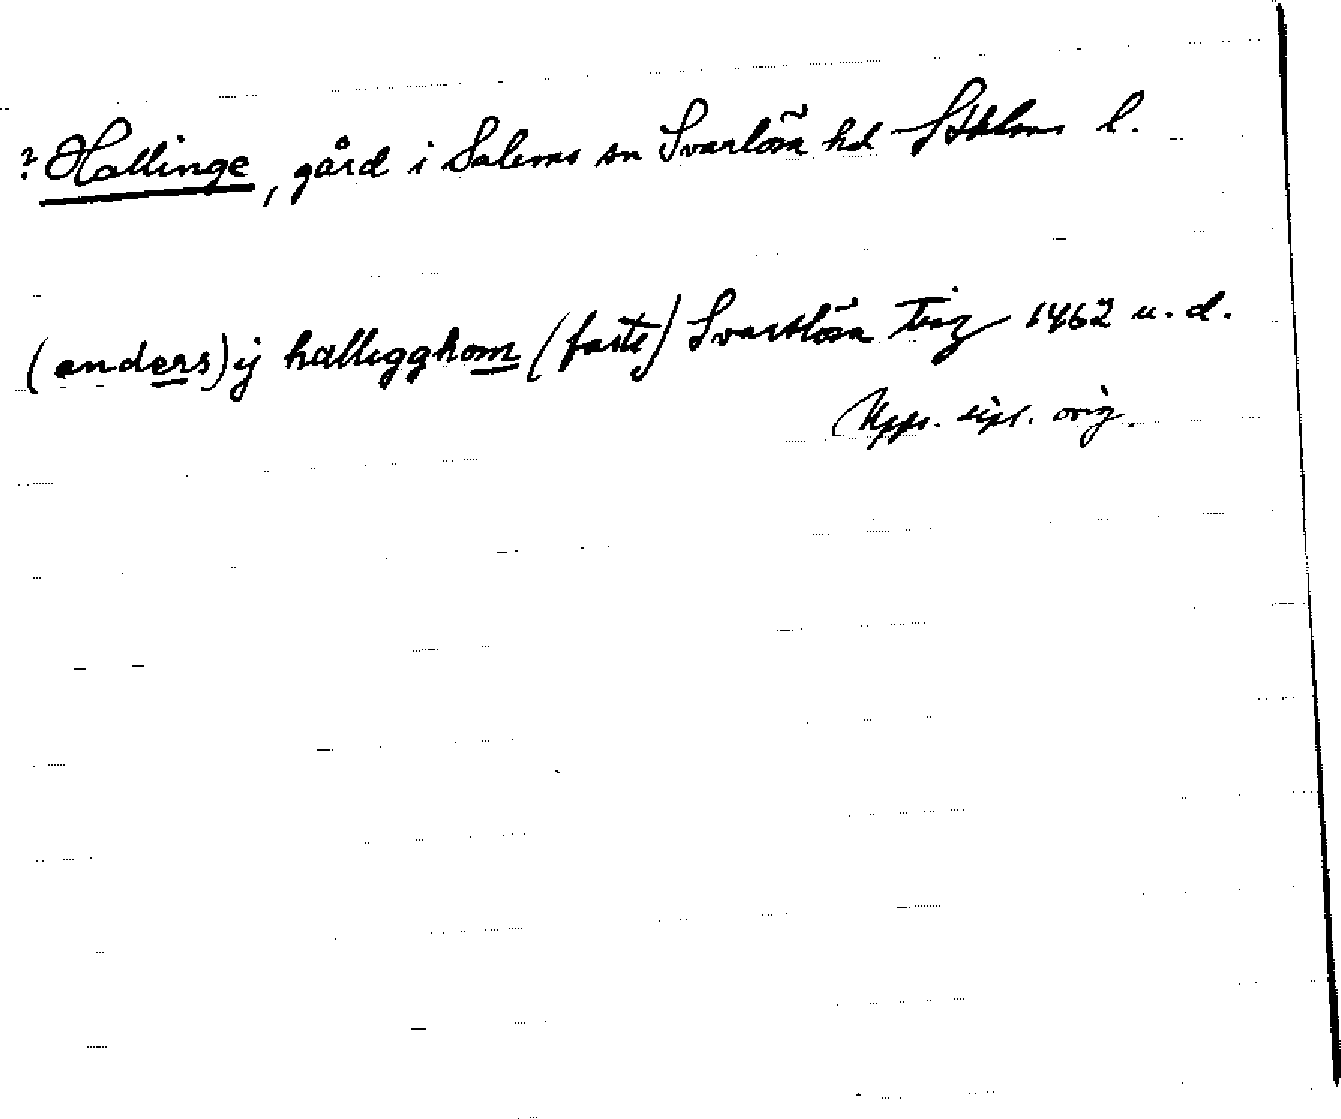 ? Hallinge, gård i Salems sn Svartlösa hd Sthlms l.
(anders) ij hallugghom (faste) Svartlösa Ting 1462 u. d.
Upps. dipl. orig.